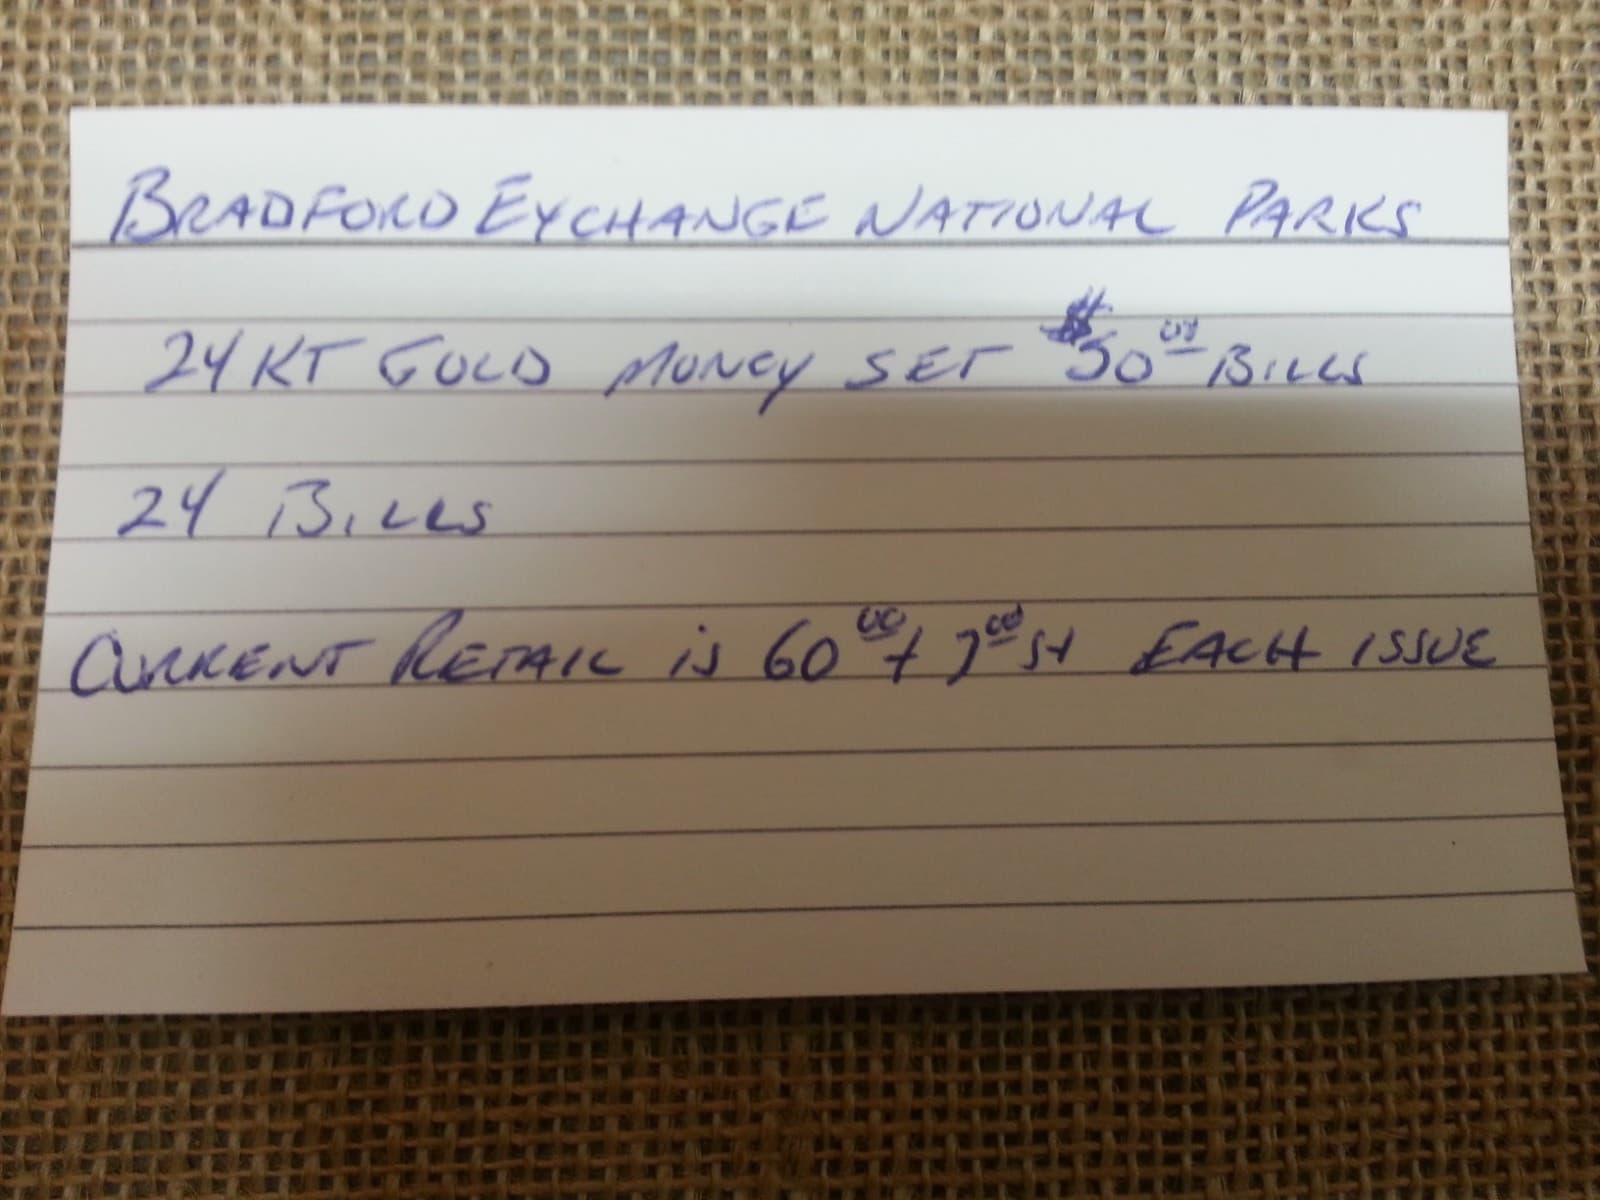 BRADFORD EXCHANGE NATIONAL PARKS
24 KT GOLD MONEY SET $50 00 BILLS
24 BILLS
CURRENT RETAIL is 60 00 + 7 00 SH EACH ISSUE